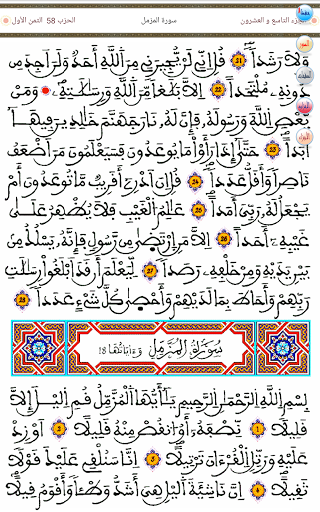 الجزء التاسع و العشرون	سورة المزمل	الحزب 58 الثمن الأول
وَلَا رَشَداً 21 قُلِ اِنِّے لَنْ يُّجِيرَنِے مِنَ اَللَّهِ أَحَدٌ وَلَنَ اَجِدَ مِن
دُونِهِۦ مُلْتَحَداً 22 اِلَّا بَلَٰغاً مِّنَ اَللَّهِ وَرِسَٰلَٰتِهِۦ وَمَنْ
يَّعْصِ اِللَّهَ وَرَسُولَهُۥ فَإِنَّ لَهُۥ نَارَ جَهَنَّمَ خَٰلِدِينَ فِيهَا
أَبَداً 23 حَتَّىٰ إِذَا رَأَوْاْ مَا يُوعَدُونَ فَسَيَعْلَمُونَ مَنَ اَضْعَفُ
نَاصِراً وَأَقَلُّ عَدَداً 24 قُلِ اِنَ اَدْرِے أَقَرِيبٌ مَّا تُوعَدُونَ أَمْ
يَجْعَلُ لَهُۥ رَبِّيَ أَمَداً 25 عَٰلِمُ اُلْغَيْبِ فَلَا يُظْهِرُ عَلَىٰ
غَيْبِهِۦٓ أَحَداً 26 اِلَّا مَنِ اِرْتَضَىٰ مِن رَّسُولٍ فَإِنَّهُۥ يَسْلُكُ مِنۢ
بَيْنِ يَدَيْهِ وَمِنْ خَلْفِهِۦ رَصَداً 27 لِّيَعْلَمَ أَن قَدَ اَبْلَغُواْ رِسَٰلَٰتِ
رَبِّهِمْ وَأَحَاطَ بِمَا لَدَيْهِمْ وَأَحْصَىٰ كُلَّ شَےْءٍ عَدَداً 28
سُورَةُ الْمُزَّمِّلِ وَءَايَاتُهَا 18
بِسْمِ اِللَّهِ اِلرَّحْمَٰنِ اِلرَّحِيمِ يَٰٓأَيُّهَا اَلْمُزَّمِّلُ قُمِ اِليْلَ إِلَّا
قَلِيلًا 1 نِّصْفَهُۥٓ أَوُ اُنقُصْ مِنْهُ قَلِيلًا 2 اَوْ زِدْ
عَلَيْهِ وَرَتِّلِ اِلْقُرْءَانَ تَرْتِيلًا 3 اِنَّا سَنُلْقِے عَلَيْكَ قَوْلًا
ثَقِيلًا 4 اِنَّ نَاشِئَةَ اَليْلِ هِيَ أَشَدُّ وَطْـٔاً وَأَقْوَمُ قِيلًا